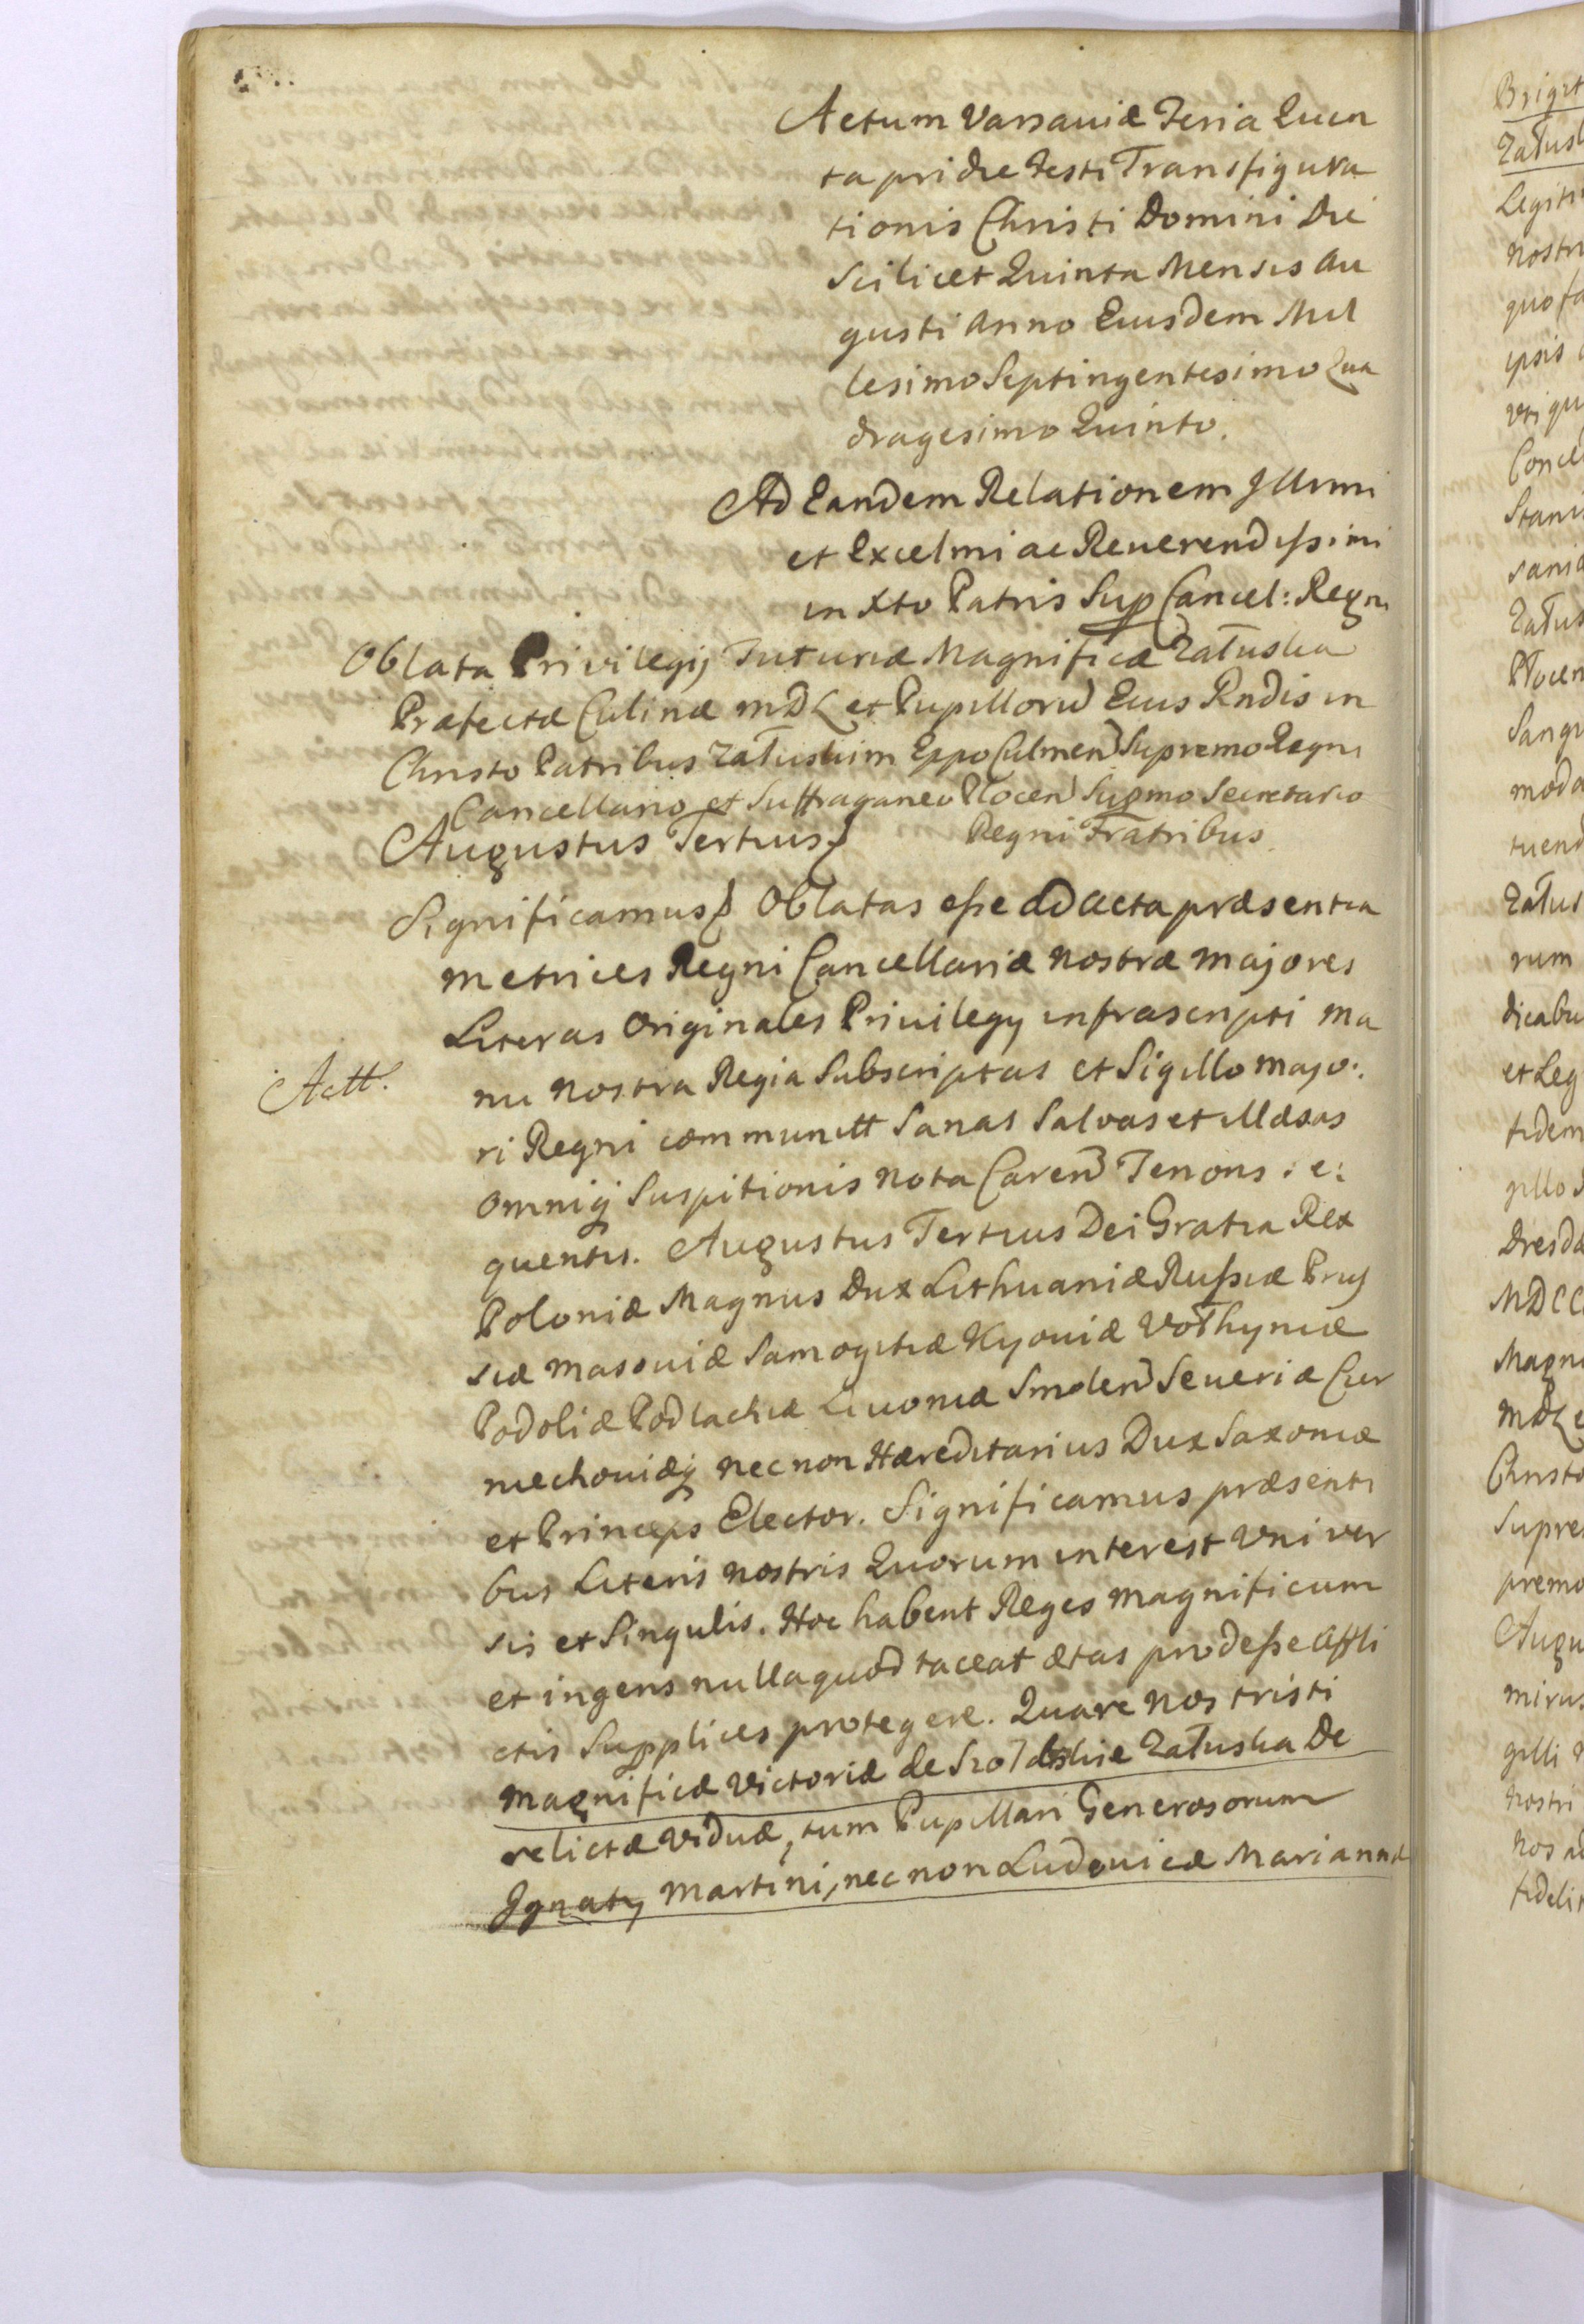 Actum Varsaviæ Feria Quin
ta pridie Festi Transfigura
tionis Christi Domini Die
Scilicet Quinta Mensis Au
gusti Anno Eiusdem Mil
lesimo Septingentesimo Qua
dragesimo Quinto.
Ad Eandem Relationem Illmi
et Excelmi ac Reverendissimi
in Xto Patris Sup Cancel: Regni
Oblata Privilegij Tutoriæ Magnificæ Załuska
Præfectæ Culinæ MDL et Pupilloru Eius Rndis in
Christo Patribus Załuskim Eppo Culmen Supremo Regni
Cancellario et Suffraganeo Plocen Supmo Secretario
Regni Fratribus
Augustus Tertius
Significamus Oblatas esse ad Acta præsentia
Metrices Regni Cancellariæ Nostræ Majores
Literas Originales Privilegij infrascripti Ma
Actt.
nu Nostra Regia Subscriptas et Sigillo Majo:
ri Regni communitt Sanas Salvas et illæsas
omniq Suspitionis nota Caren Tenoris se:
quentis. Augustus Tertius Dei Gratia Rex
Poloniæ Magnus Dux Lithuaniæ Russiæ Prus
siæ Masoviæ Samogitiæ Kyoviæ Vołhyniæ
Podoliæ Podlachiæ Livoniæ Smolen Severiæ Czer
niechoviæq necnon Hæreditarius Dux Saxoniæ
et Princeps Elector. Significamus præsenti
bus Literis nostris Quorum interest Univer
sis et Singulis. Hoc habent Reges Magnificum
et ingens nulla quod taceat ætas prodesse Affli
ctis Supplices protegere. Quare Nos tristi
Magnificæ Victoriæ de Szołdrskie Załuska De
relictæ Viduæ, tum Pupillari Generosorum
Ignatij Martini, necnon Ludovicæ Mariannæ